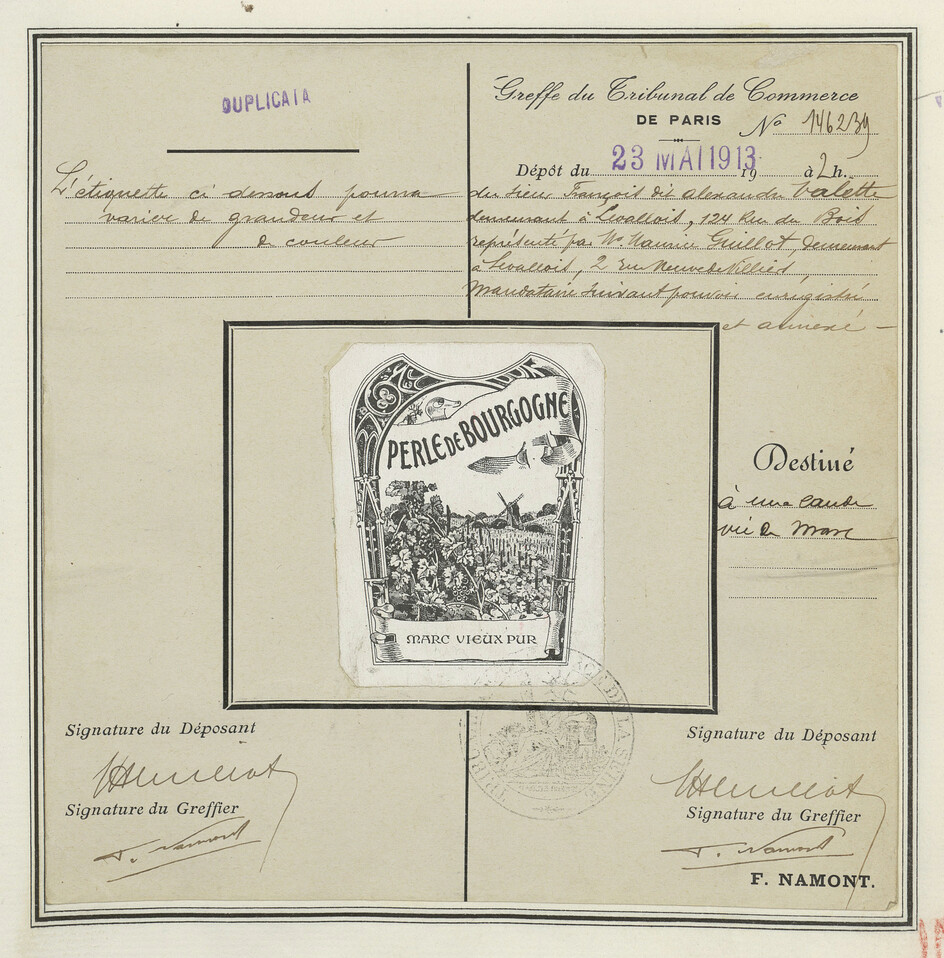 DUPLICATA
L'étiquette ci dessous pourra
varier de grandeur et
de couleur
Greffe du Tribunal de Commerce
DE PARIS
No 146239
Dépôt du 23 MAI 1913 19 à 2 h.
du sieur François dit Alexandre Valette
demeurant à Levallois, 124 Rue du Bois
représenté par Mr. Maurice Guillot, demeurant
à Levallois, 2 rue Neuve de Villiers,
Mandataire suivant pouvoir enregistré
et annexé —
PERLE DE BOURGOGNE
MARC VIEUX PUR
Destiné
à une eau de
vie de Marc
DE LA SEINE
Signature du Déposant
Signature du Greffier
F. Namont
Signature du Déposant
Signature du Greffier
F. Namont
F. NAMONT.